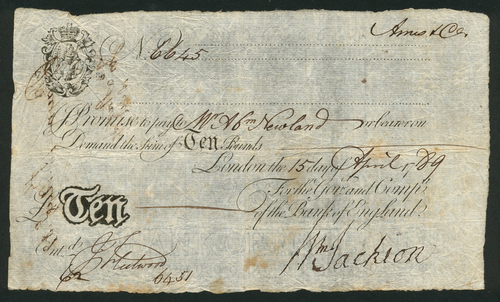 Amis & Co.
No. 6645
I Promise to pay to Mr. Abm. Newland or bearer on
Demand the Sum of Ten Pounds
London the 15 day of April 1789
For the Govr. and Compa.
of the Bank of England.
£ Ten
Wm. Jackson
Entd.
Fleetwood
6451